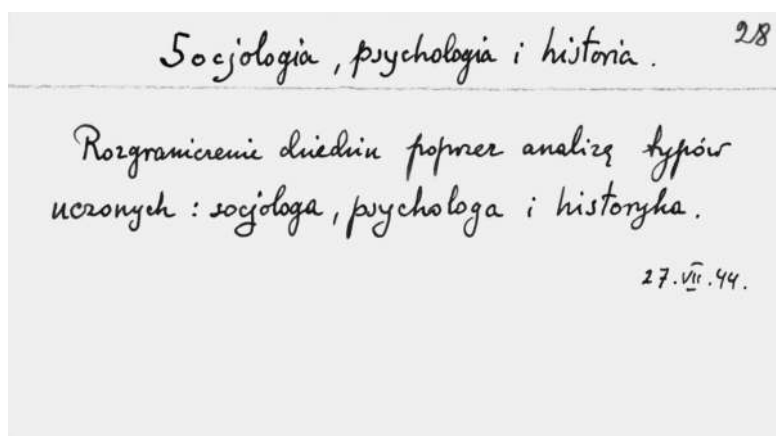 28
Socjologia, psychologia i historia.
Rozgraniczenie dziedzin poprzez analizę typów
uczonych : socjologa, psychologa i historyka.
27.VII.44.